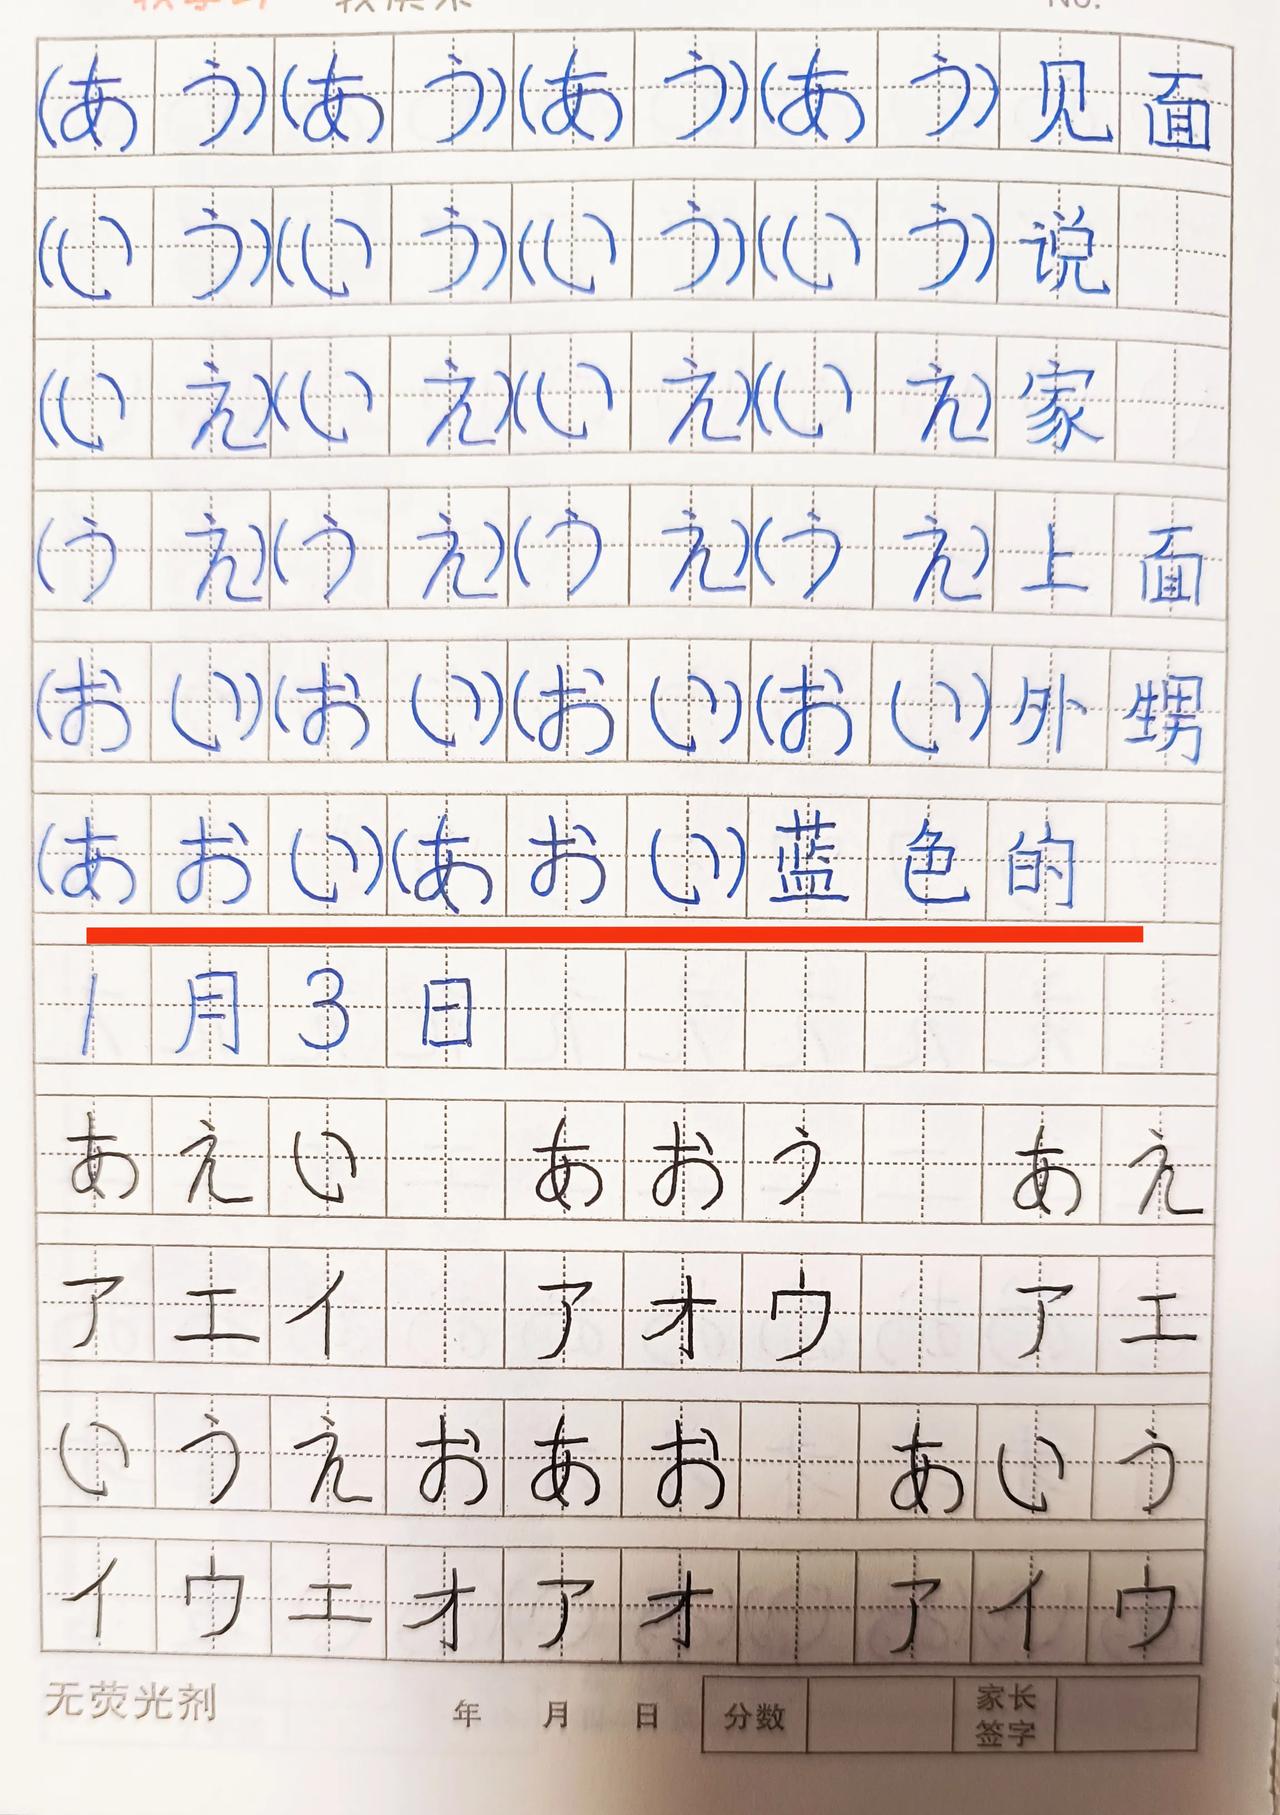 No.
(あう)(あう)(あう)(あう)见面
(いう)(いう)(いう)(いう)说
(いえ)(いえ)(いえ)(いえ)家
(うえ)(うえ)(うえ)(うえ)上面
(おい)(おい)(おい)(おい)外甥
(あおい)(あおい)蓝色的
1月3日
あえい あおう あえ
アエイ アオウ アエ
いうえおあお あいう
イウエオアオ アイウ
无荧光剂 年 月 日 分数 家长签字